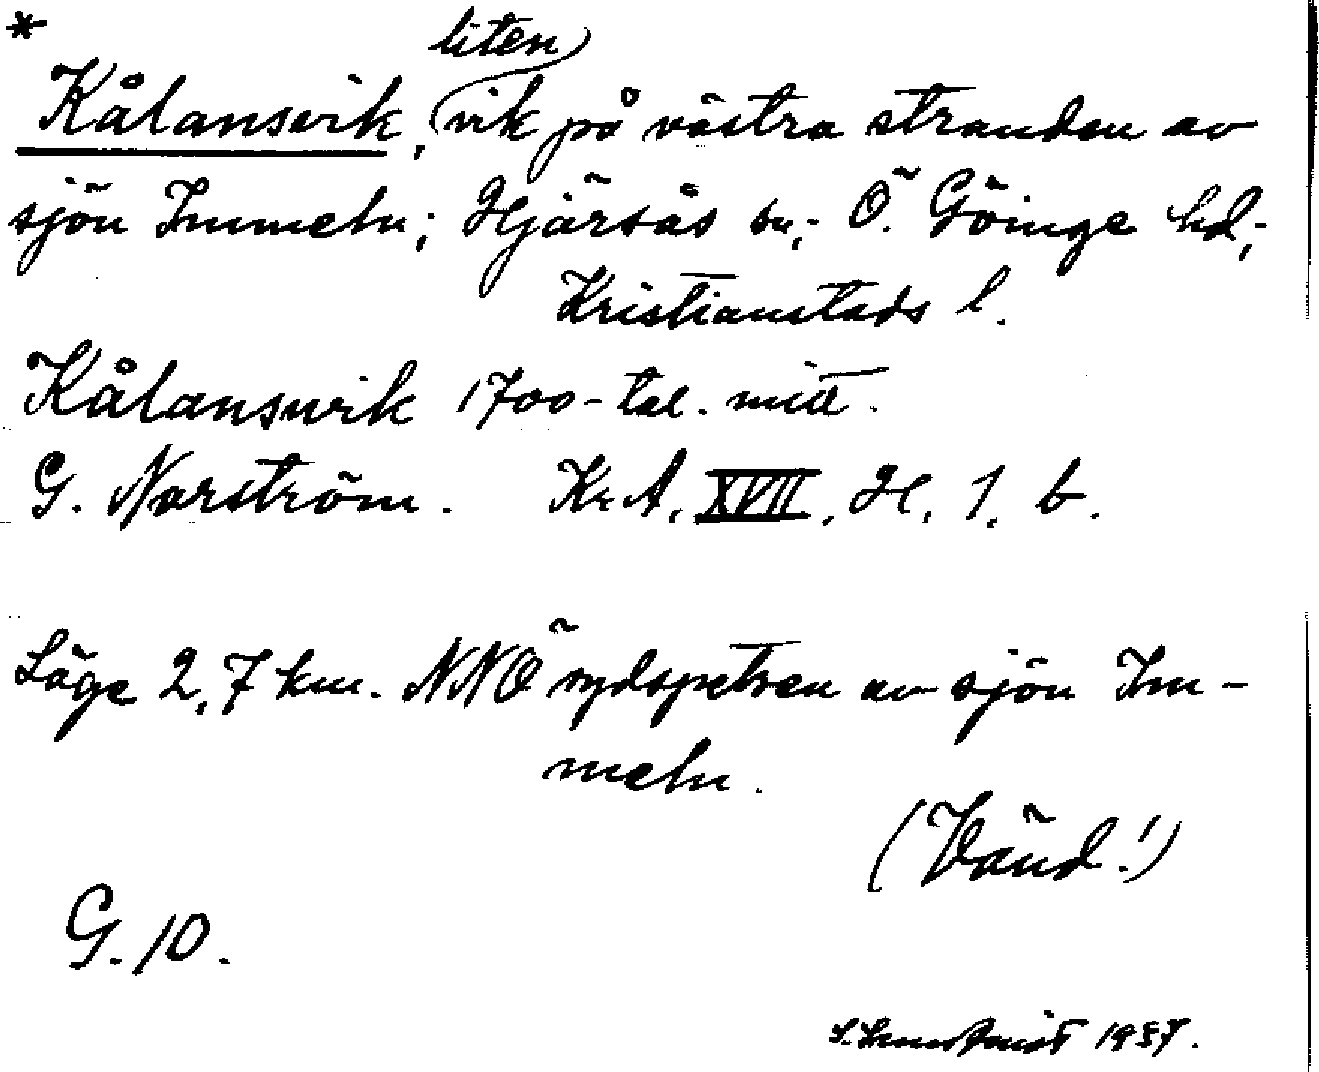 *
liten
Kålansvik, vik på västra stranden av
sjön Immeln; Hjärsås sn; Ö. Göinge hd;
Kristianstads l.
Kålansvik 1700-tal. mitt.
G. Norström. KrA, XVII, H, 1, b.
Läge 2,7 km. NNÖ sydspetsen av sjön Im-
meln.
(Vänd!)
G. 10.
1937.